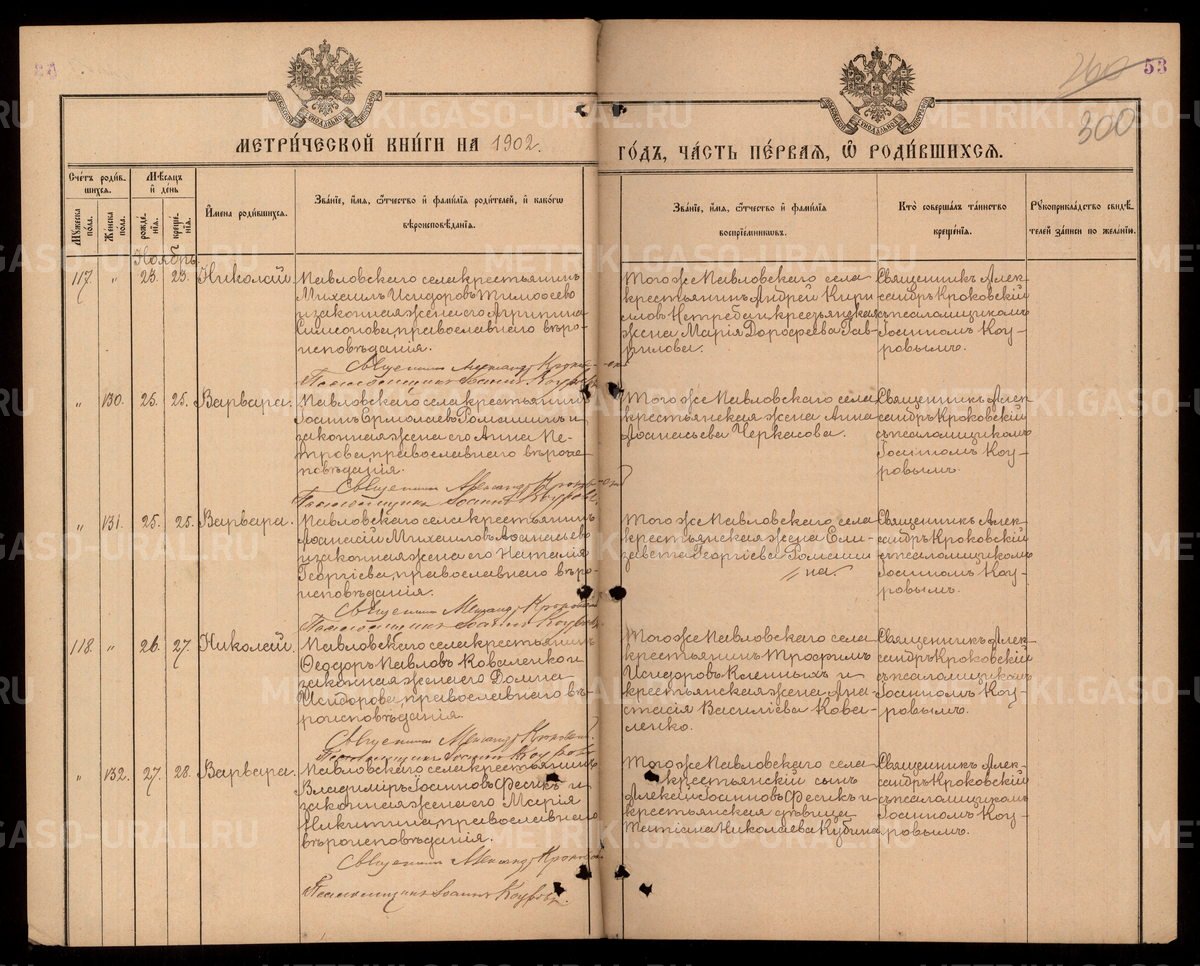 53
260
300
МЕТРИ́ЧЕСКОЙ КНИ́ГИ НА 1902.
ГО́ДЪ, ЧА́СТЬ ПЕ́РВАЯ, Ѡ҆ РОДИ́ВШИХСѦ.
Сче́тъ роди́в-
шихся.
Мѣ́сяцъ
и҆ де́нь
Мꙋ́жеска
по́ла.
Же́нска
по́ла.
рожде́-
нїя.
креще́-
нїя.
И҆мена роди́вшихся.
Зва́нїе, и҆́мя, ѻ҆́тчество и҆ фами́лїя роди́телей, и҆ како́гѡ
вѣроисповѣ́данїя.
Зва́нїе, и҆́мя, ѻ҆́тчество и҆ фами́лїя
воспрїе́мникѡвъ.
Кто̀ соверша́лъ та́инство
креще́нїя.
Рꙋкоприкла́дство свидѣ́-
телей за́писи по жела́нїю.
Ноябрь
117. " 23. 23. Николай
Павловскаго села крестьянинъ
Михаилъ Исидоровъ Тимофеево
и законная жена его Агрипина
Самсонова, православнаго вѣро-
исповѣданія.
Священникъ Александр Кроковск-
Псаломщикъ Іоаннъ Коуровъ
Того же Павловскаго села
крестьянинъ Андрей Кири
ловъ Нетреба и крестьянская
жена Марія Дорофеева Гав-
рилова.
Священникъ Алек-
сандръ Кроковскій
съ псаломщикомъ
Іоанномъ Коу-
ровымъ.
" 130. 25. 25. Варвара.
Павловскаго села крестьянинъ
Іоаннъ Ермолаевъ Ромашинъ и
законная жена его Анна Пе-
трова, православнаго вѣроис-
повѣданія.
Священникъ Александр Кроковскій
Псаломщикъ Іоаннъ Коуровъ.
Того же Павловскаго села
крестьянская жена Анна
Аѳанасьева Черкасова.
Священникъ Алек-
сандръ Кроковскій
съ псаломщикомъ
Іоанномъ Коу-
ровымъ.
" 131. 25. 25. Варвара.
Павловскаго села крестьянинъ
Аѳанасій Михаиловъ Аѳанасьев
и законная жена его Наталія
Георгіева, православнаго вѣро-
исповѣданія.
Священникъ Александр Кроковскій
Псаломщикъ Іоаннъ Коуровъ.
Того же Павловскаго села
крестьянская жена Ели-
завета Георгіева Ромаши
на.
Священникъ Алек-
сандръ Кроковскій
съ псаломщикомъ
Іоанномъ Коу-
ровымъ.
118. " 26. 27. Николай.
Павловскаго села крестьянинъ
Ѳеодоръ Павловъ Коваленко и
законная жена его Домна
Исидорова, православнаго вѣ-
роисповѣданія.
Священникъ Александр Кроковскій
Псаломщикъ Іоаннъ Коуровъ
Того же Павловскаго села
крестьянинъ Трофимъ
Исидоровъ и
крестьянская жена Ана
стасія Василіева Кова-
ленко.
Священникъ Алек-
сандръ Кроковскій
съ псаломщикомъ
Іоанномъ Коу-
ровымъ.
" 132. 27. 28. Варвара.
Павловскаго села крестьянинъ
Владиміръ Іоанновъ Фесикъ и
законная жена его Марія
Никитина, православнаго
вѣроисповѣданія.
Священникъ Александр Кроковскій
Псаломщикъ Іоаннъ Коуровъ.
Того же Павловскаго села
крестьянскій сынъ
Алексій Іоанновъ Фесикъ и
крестьянская дѣвица
Татіана Николаева Кубина
Священникъ Алек-
сандръ Кроковскій
съ псаломщикомъ
Іоанномъ Коу-
ровымъ.
METRIKI.GASO-URAL.RU